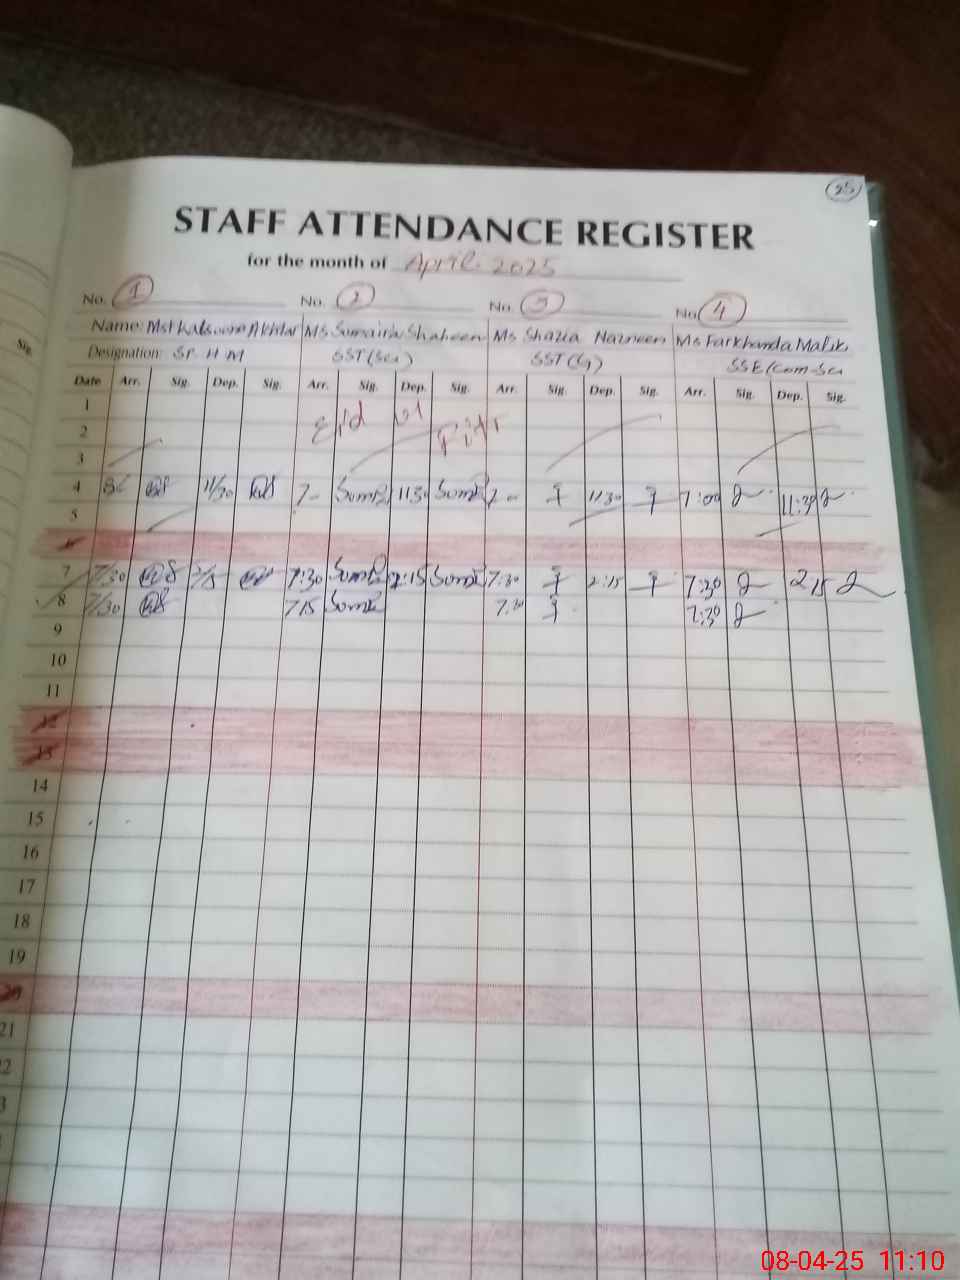 25
STAFF ATTENDANCE REGISTER
for the month of April 2025
No. 1 No. 2 No. 3 No. 4
Name: Mst Kalsoom Akhtar Ms Sumaira Shaheen Ms Shazia Nazneen Ms Farkhanda Malik
Designation: SST (Sci) SST (G) SSE (Com-Sci
Sig.
Date Arr. Sig. Dep. Sig. Arr. Sig. Dep. Sig. Arr. Sig. Dep. Sig. Arr. Sig. Dep. Sig.
1 Eid ul
2 Fitr
3
4 11/30 7- 1130 7- 1130 7:00 11:30
5
6
7 7/30 7:30 2:15 7:30 2:15 7:30 2 15
8 7/30 715 7:30 7:30
9
10
11
12
13
14
15
16
17
18
19
20
21
08-04-25 11:10